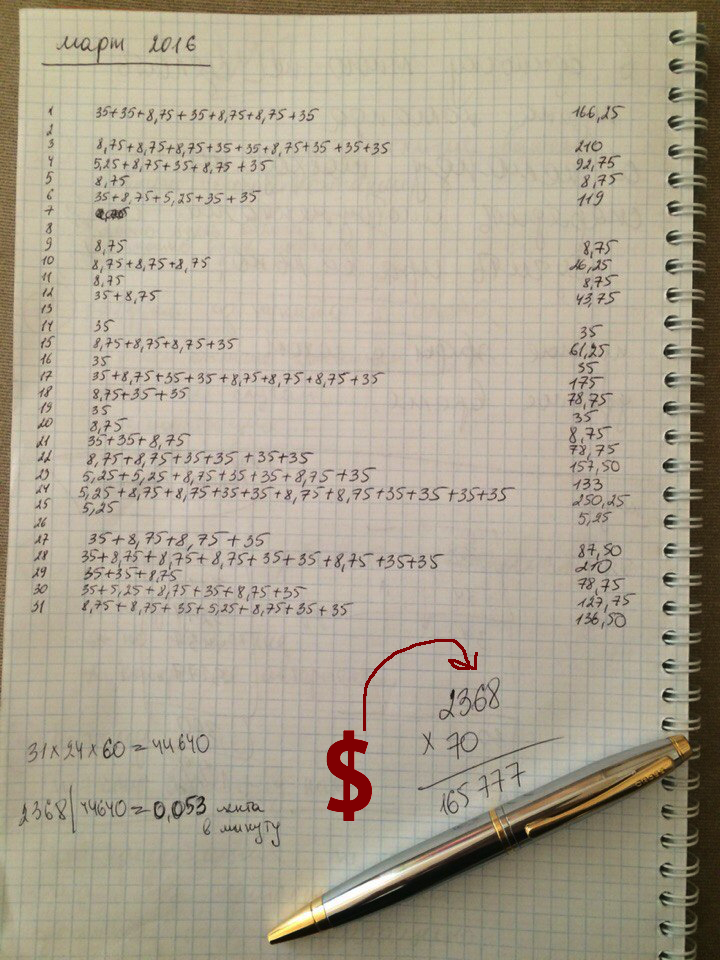 март 2016
1 35+35+8,75+35+8,75+8,75+35 166,25
2
3 8,75+8,75+8,75+35+35+8,75+35+35+35 210
4 5,25+8,75+35+8,75+35 92,75
5 8,75 8,75
6 35+8,75+5,25+35+35 119
7
8
9 8,75 8,75
10 8,75+8,75+8,75 26,25
11 8,75 8,75
12 35+8,75 43,75
13
14 35 35
15 8,75+8,75+8,75+35 61,25
16 35 35
17 35+8,75+35+35+8,75+8,75+8,75+35 175
18 8,75+35+35 78,75
19 35 35
20 8,75 8,75
21 35+35+8,75 78,75
22 8,75+8,75+35+35+35+35 157,50
23 5,25+5,25+8,75+35+35+8,75+35 133
24 5,25+8,75+8,75+35+35+8,75+8,75+35+35+35+35 250,25
25 5,25 5,25
26
27 35+8,75+8,75+35 87,50
28 35+8,75+8,75+8,75+35+35+8,75+35+35 210
29 35+35+8,75 78,75
30 35+5,25+8,75+35+8,75+35 127,75
31 8,75+8,75+35+5,25+8,75+35+35 136,50
$
2368
x 70
165777
31x24x60=44640
2368/44640=0,053 цента
в минуту